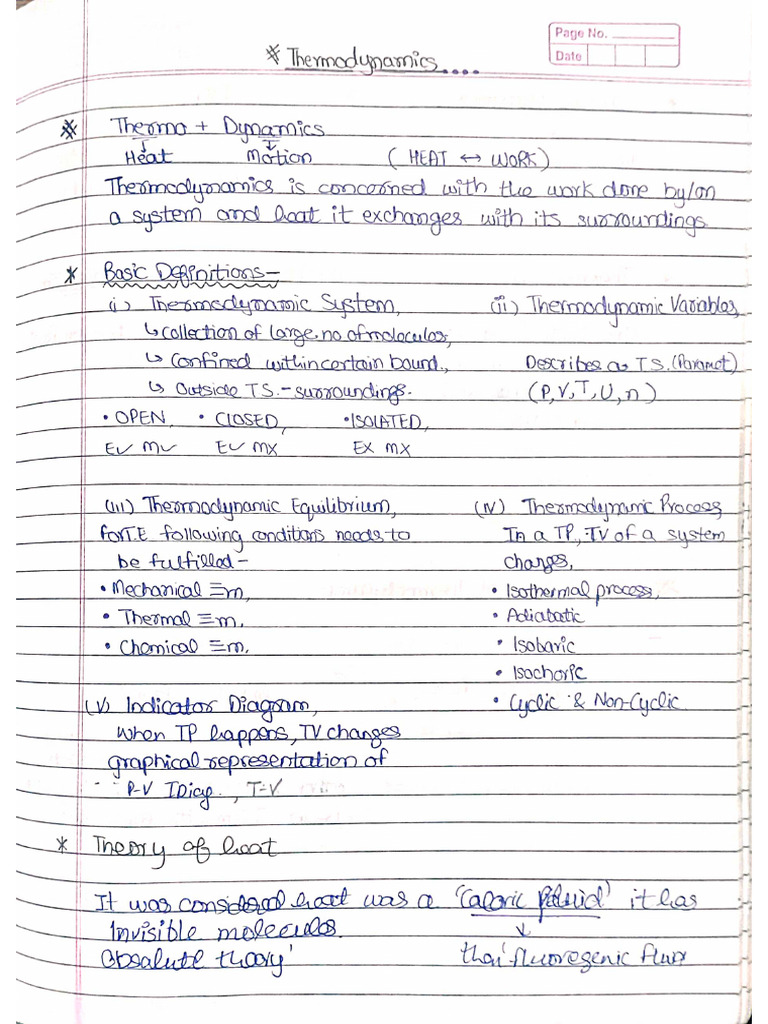 Page No.
Date
* Thermodynamics....
* Thermo + Dynamics
Heat Motion (HEAT ↔ WORK)
Thermodynamics is concerned with the work done by/on
a system and heat it exchanges with its surroundings
* Basic Definitions-
(i) Thermodynamic System,
↳ collection of large no of molecules,
↳ Confined within certain bound.,
↳ Outside TS. - surroundings.
• OPEN, • CLOSED, • ISOLATED,
E✓ M✓ E✓ MX EX MX
(ii) Thermodynamic Variables,
Describes a TS. (Paramet)
(P, V, T, U, n)
(iii) Thermodynamic Equilibrium,
for T.E following conditions needs to
be fulfilled -
• Mechanical ≡m,
• Thermal ≡m.
• Chemical ≡m.
(iv) Thermodynamic Process
In a TP, TV of a system
changes,
• Isothermal process,
• Adiabatic
• Isobaric
• Isochoric
• Cyclic & Non-Cyclic
(v) Indicator Diagram,
When TP happens, TV changes
graphical representation of
P-V IDiag., T-V
* Theory of heat
It was considered heat was a 'Caloric fluid' it has
Invisible molecules.
Obsalute theory'
↓
flux